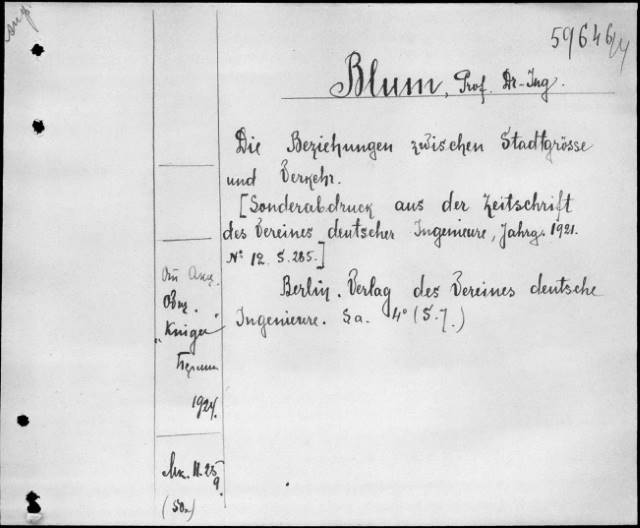 59646
Blum, Prof. Dr-Ing.
Die Beziehungen zwischen Stadtgrösse
und Verkehr.
[Sonderabdruck aus der Zeitschrift
des Vereines deutscher Ingenieure, Jahrg. 1921.
№ 12 S. 285.]
Berlin. Verlag des Vereines deutsche
Ingenieure. S.a. 4° (S. 7.)
"Kniga"
Берлин
1924.